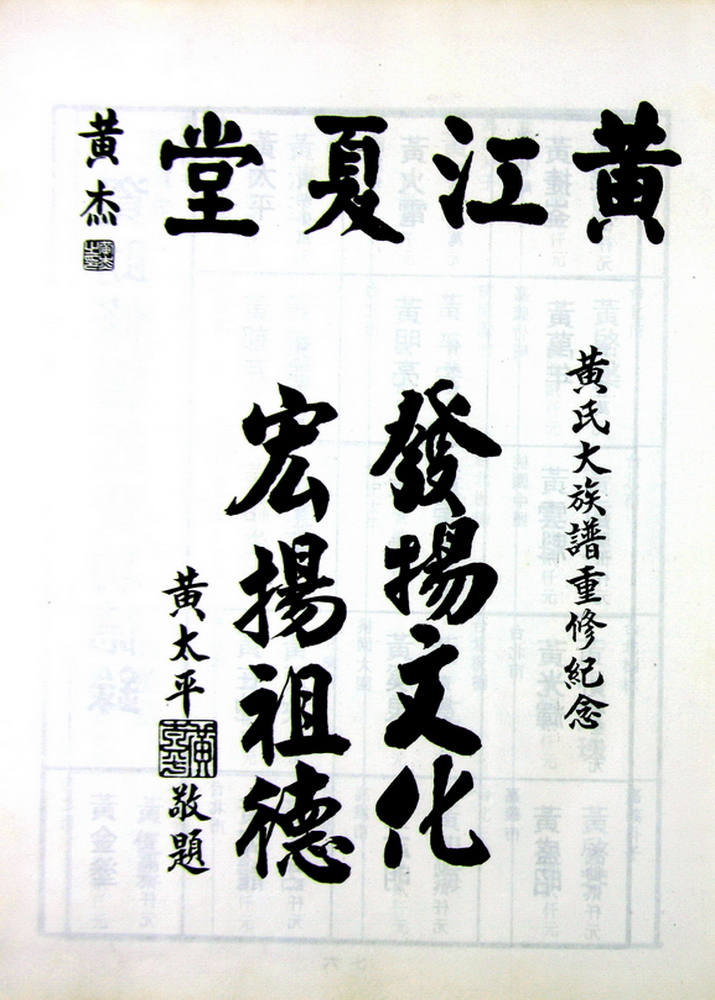 黃江夏堂
黃杰
黃氏大族譜重修紀念
發揚文化
宏揚祖德
黃太平
黃太平
敬題